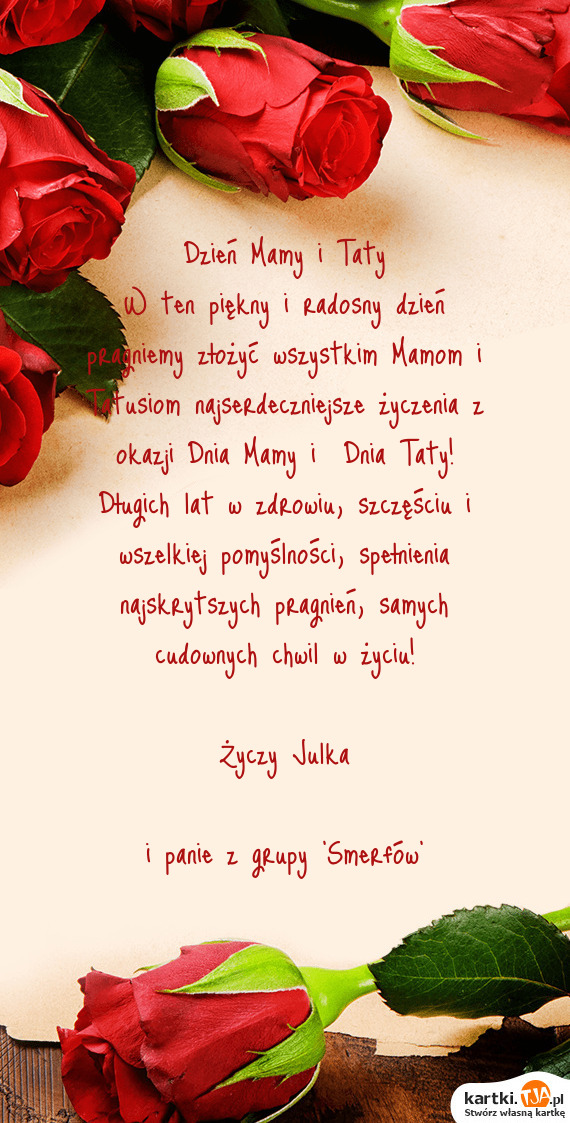 Dzień Mamy i Taty
W ten piękny i radosny dzień
pragniemy złożyć wszystkim Mamom i
Tatusiom najserdeczniejsze życzenia z
okazji Dnia Mamy i Dnia Taty!
Długich lat w zdrowiu, szczęściu i
wszelkiej pomyślności, spełnienia
najskrytszych pragnień, samych
cudownych chwil w życiu!
Życzy Julka
i panie z grupy "Smerfów"
kartki.TJA.pl
Stwórz własną kartkę